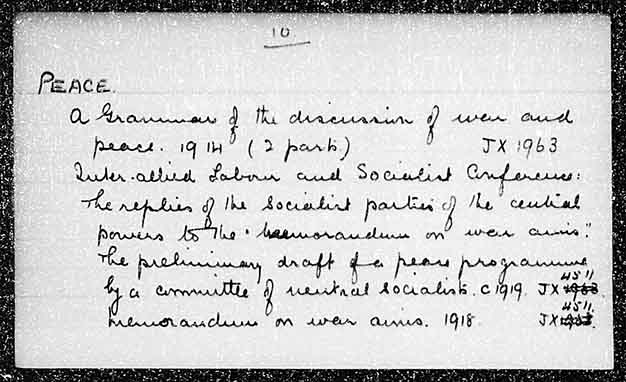 10
PEACE.
A Grammar of the discussion of war and
peace. 1914 (2 parts) JX 1963
Inter-allied Labour and Socialist Conference:
The replies of the Socialist parties of the central
powers to the "memorandum on war aims".
The preliminary draft of a peace programme
4511
by a committee of neutral socialists. c1919. JX
4511.
Memorandum on war aims. 1918. JX